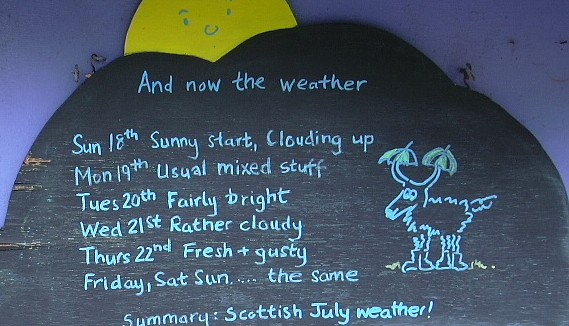 And now the weather
Sun 18th Sunny start, Clouding up
Mon 19th Usual mixed stuff
Tues 20th Fairly bright
Wed 21st Rather cloudy
Thurs 22nd Fresh + gusty
Friday, Sat Sun.... the same
Summary: Scottish July weather!